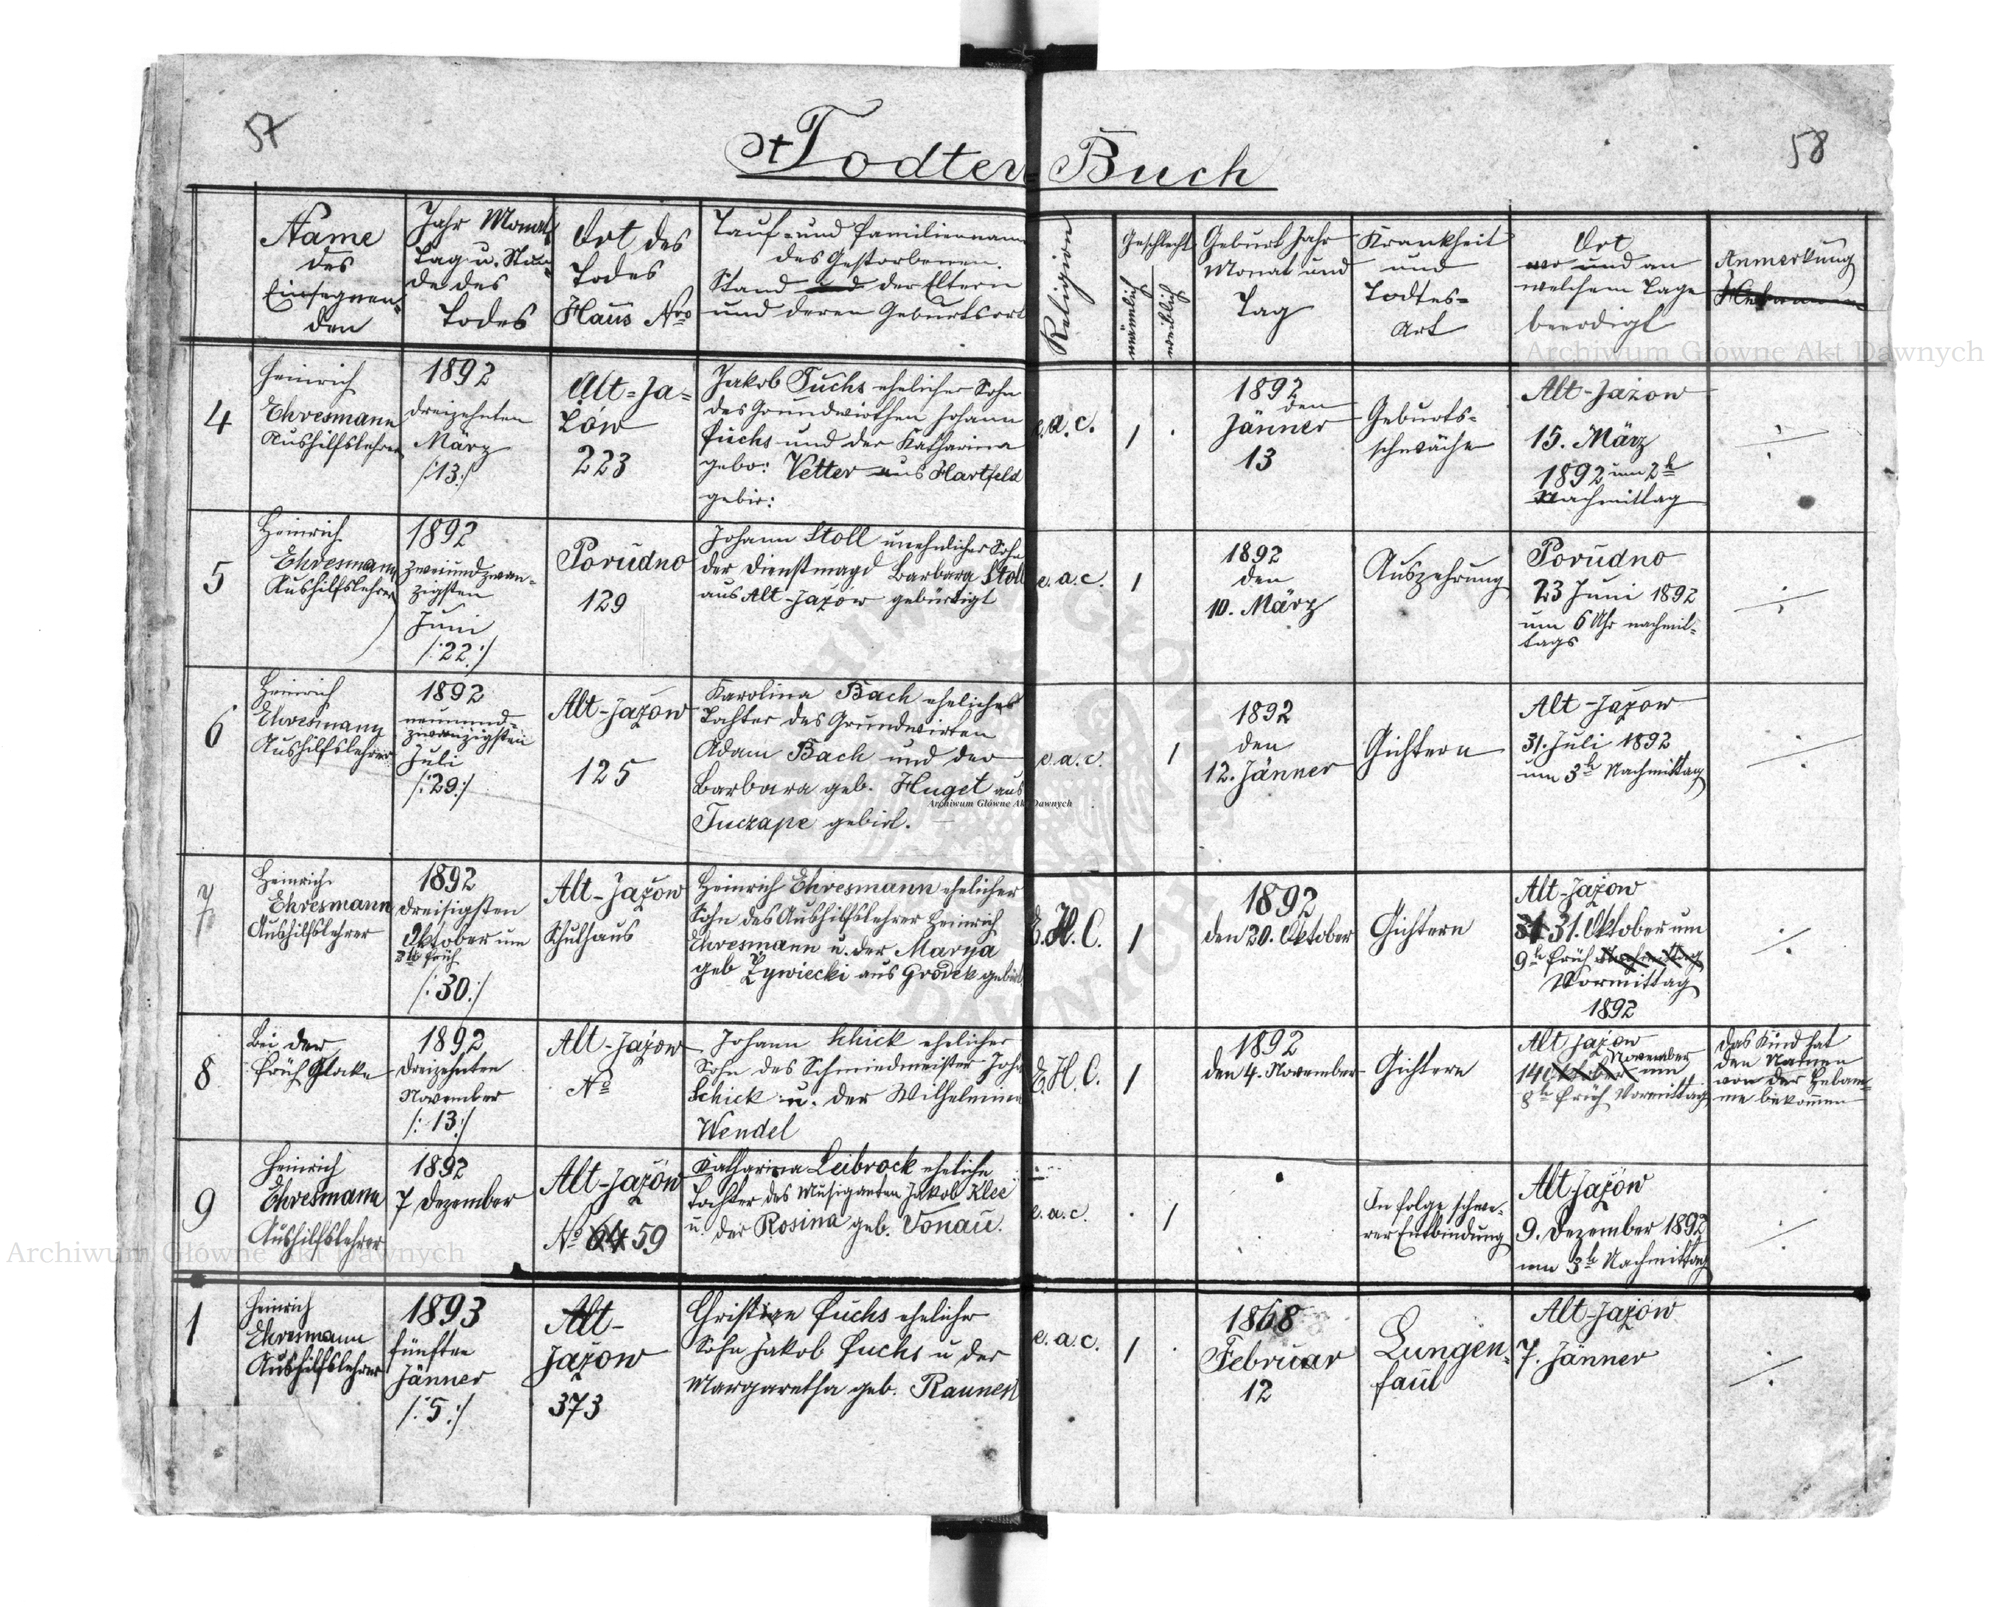 57
58
Todten Buch
Name
des
Einsegnen-
den
Jahr Monat
Tag u. Stun-
de des
Todes
Ort des
Todes
Haus Nro
Tauf- und Familienname
des Gestorbenen.
Stand der Eltern
und deren Geburtsort
Religion
Geschlecht
männlich
weiblich
Geburt Jahr
Monat und
Tag
Krankheit
und
Todtes-
Art
Ort
wo und an
welchem Tage
beerdigt
Anmerkung
4
Heinrich
Ehresmann
Aushilfslehrer
1892
dreizehnten
März
/:13:/
Alt-Ja-
zów
223
Jakob Fuchs ehelicher Sohn
des Grundwirthen Johann
Fuchs und der Katharina
gebo: Vetter aus Hartfeld
gebir:
e.a.c.
1
1892
den
Jänner
13
Geburts-
schwäche
Alt-Jazow
15. März
1892 um 2h
Nachmittag
5
Heinrich
Ehresmann
Aushilfslehrer
1892
zweiundzwan-
zigsten
Juni
/:22:/
Porudno
129
Johann Stoll unehelicher Sohn
der Dienstmagd Barbara Stoll
aus Alt-Jazów gebürtigt
e.a.c.
1
1892
den
10. März
Auszehrung
Porudno
23 Juni 1892
um 6 Uhr nachmit-
tags
6
Heinrich
Ehresmann
Aushilfslehrer
1892
neunund-
zwanzigsten
Juli
/:29:/
Alt-Jazow
125
Karolina Bach eheliches
Tochter des Grundwirten
Adam Bach und der
Barbara geb. Huget aus
Tuczape gebirt.
e.a.c.
1
1892
den
12. Jänner
Gichtern
Alt-Jazow
31. Juli 1892
um 3h Nachmittag
7
Heinrich
Ehresmann
Aushilfslehrer
1892
dreisigsten
Oktober um
früh
/:30:/
Alt-Jazow
Schulhaus
Heinrich Ehresmann ehelicher
Sohn des Aushilfslehrer Heinrich
Ehresmann u. der Marya
geb Zywiecki aus Grodek gebürt
E.H.C.
1
1892
den 20. Oktober
Gichtern
Alt-Jazow
31. Oktober um
9h früh Nachmittag
Vormittag
1892
8
Bei der
Früh Glocke
1892
dreizehnten
November
/:13:/
Alt-Jazow
No
Johann Schick ehelicher
Sohn des Schmiedmeister Joha
Schick u. der Wilhelmina
Wendel
E.H.C.
1
1892
den 4. November
Gichtern
Alt Jazow
November
14 Oktober um
8h früh Vormittag
das Kind hat
den Namen
von der Hebam-
me bekommen
9
Heinrich
Ehresmann
Aushilfslehrer
1892
7 Dezember
Alt-Jazów
No 64 59
Katharina Leibrock eheliche
Tochter des Musiganten Jakob Klee
u. der Rosina geb. Vonau.
e.a.c.
1
In folge schwe-
rer Entbindung
Alt Jazów
9. Dezember 1892
um 3h Nachmittag
1
Heinrich
Ehresmann
Aushilfslehrer
1893
fünften
Jänner
/:5:/
Alt-
Jazow
373
Christian Fuchs ehelicher
Sohn Jakob Fuchs u der
Margaretha geb. Raunen
e.a.c.
1
1868
Februar
12
Lungen-
faul
Alt-Jazów
7. Jänner
Archiwum Główne Akt Dawnych
Archiwum Główne Akt Dawnych
Archiwum Główne Akt Dawnych